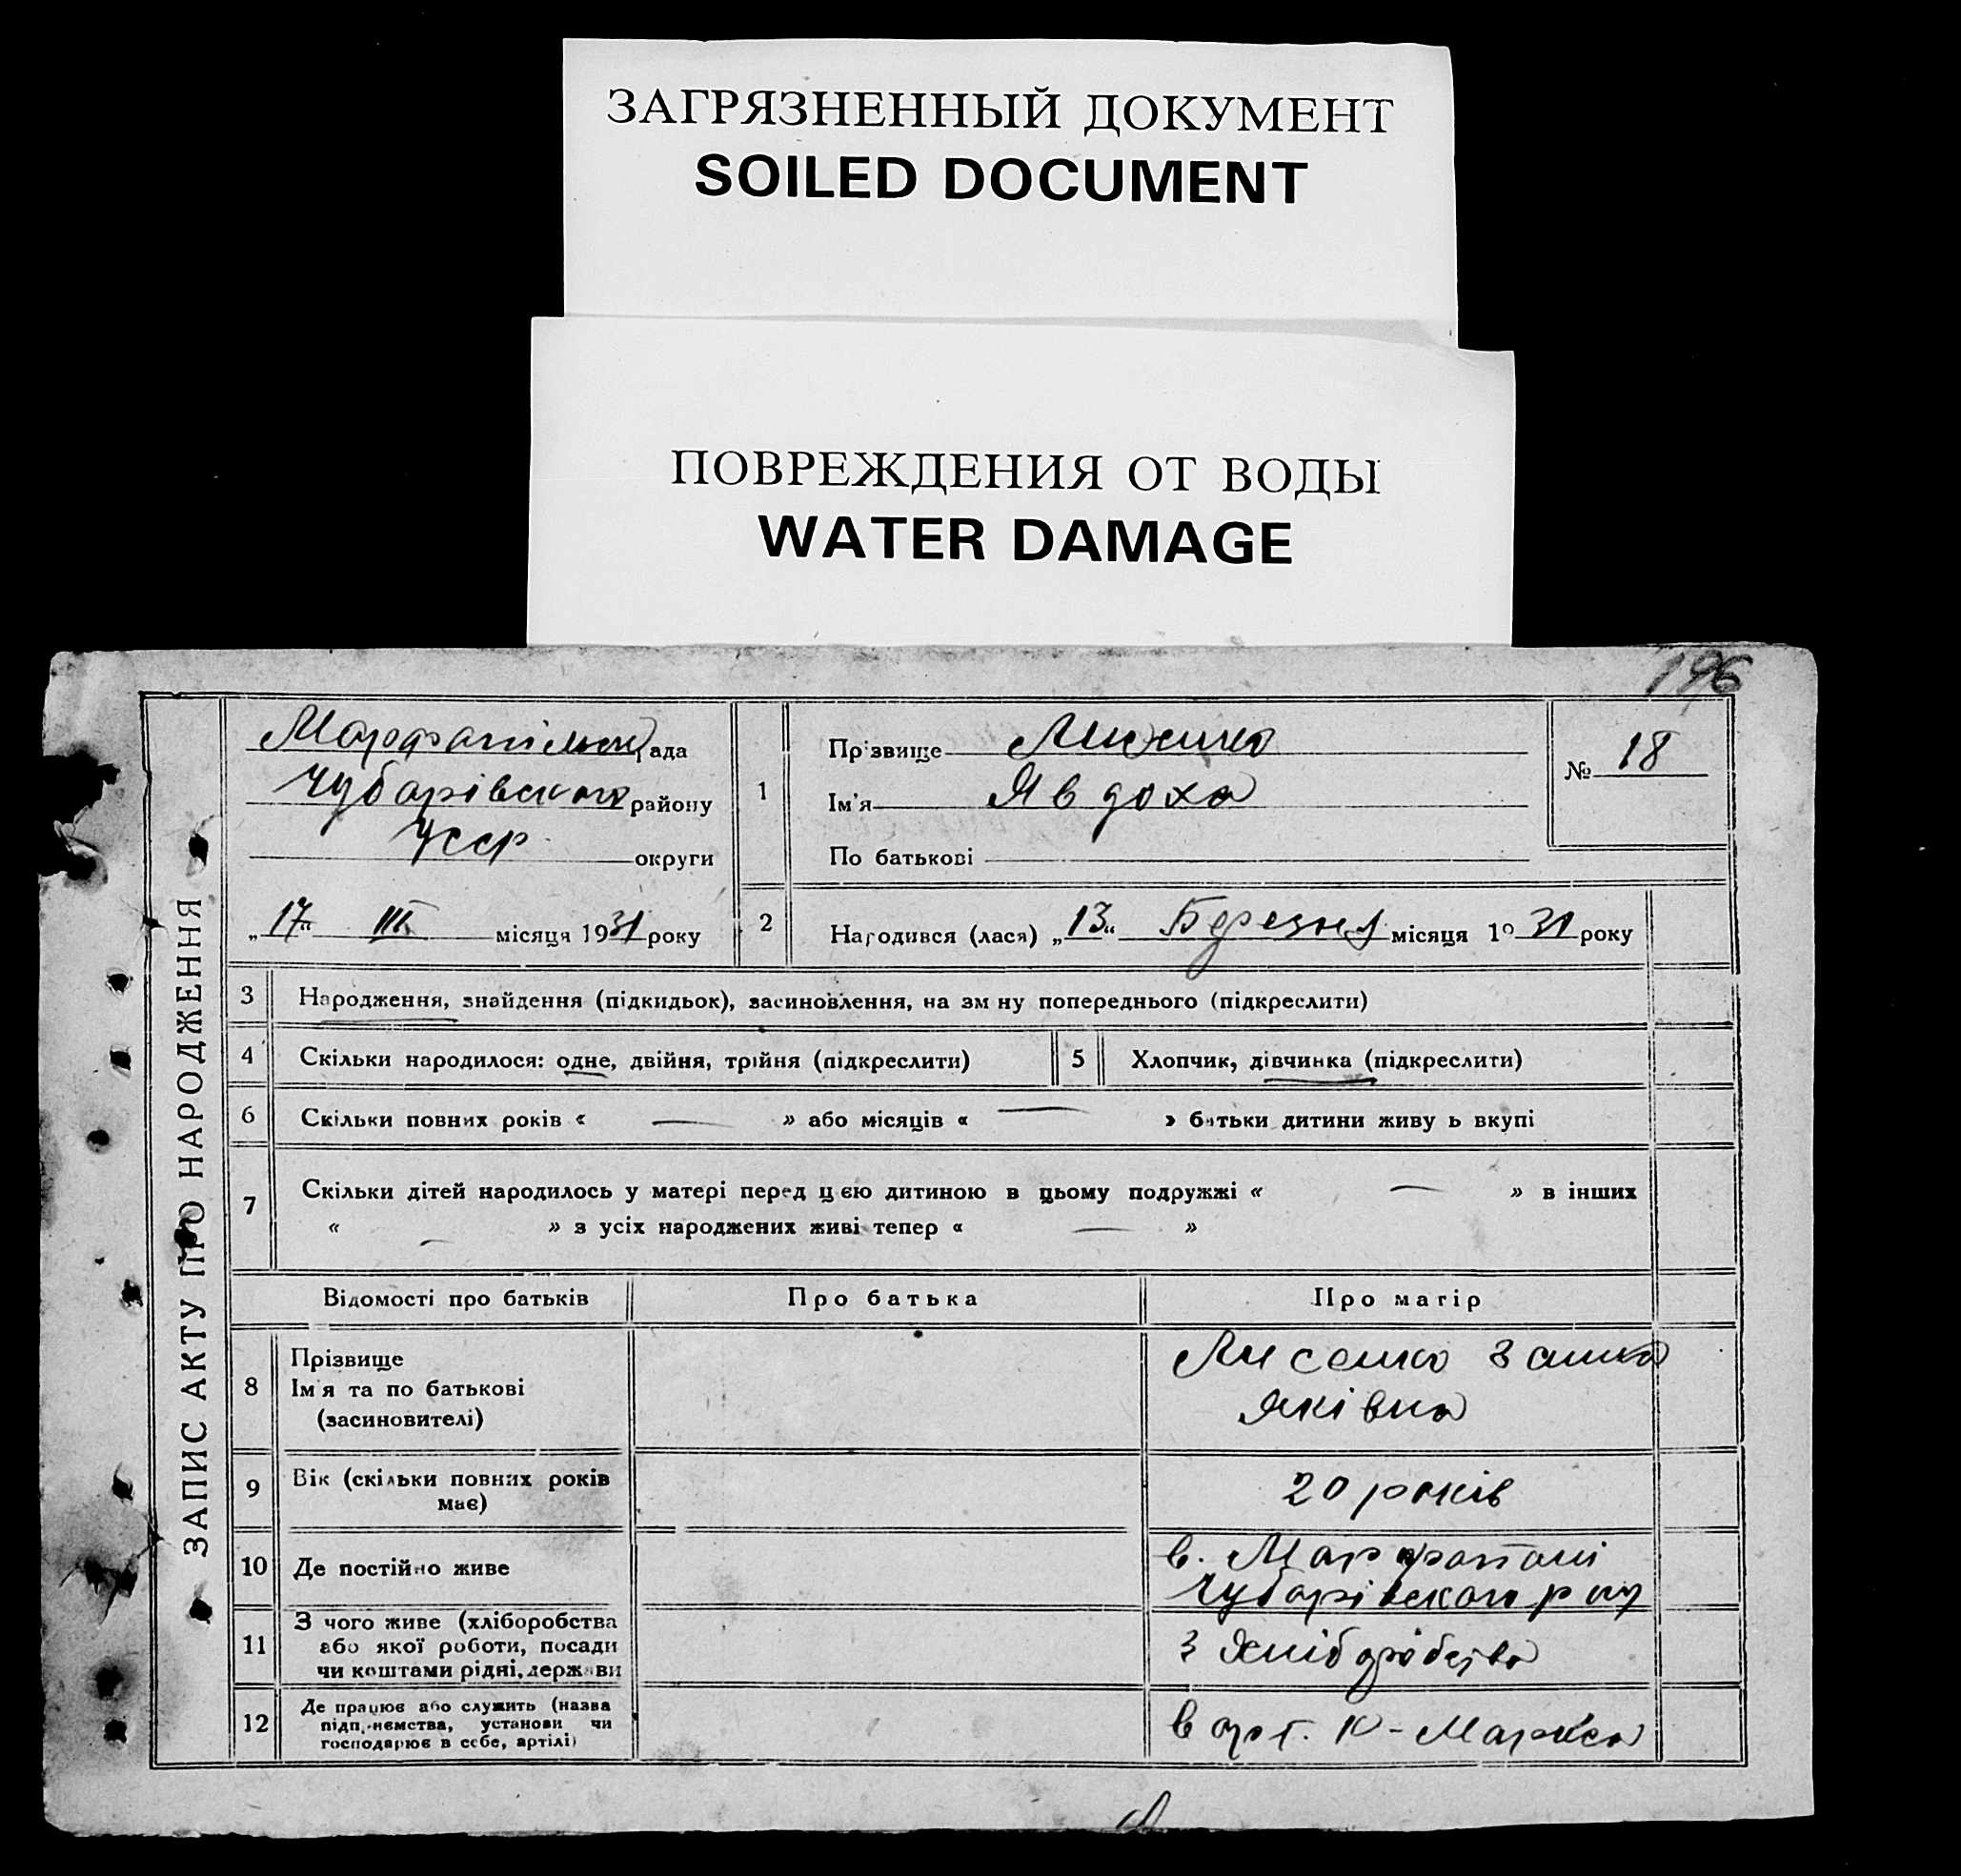 ЗАГРЯЗНЕННЫЙ ДОКУМЕНТ
SOILED DOCUMENT
ПОВРЕЖДЕНИЯ ОТ ВОДЫ
WATER DAMAGE
196
ЗАПИС АКТУ ПРО НАРОДЖЕННЯ
Марфопільськ рада
Чубарівського району
УССР округи
„17“ III місяця 1931 року
1
Прізвище Лисенко
Ім'я Явдоха
По батькові
№ 18
2 Народився (лася) „13“ Березня місяця 1931 року
3 Народження, знайдення (підкидьок), засиновлення, на зміну попереднього (підкреслити)
4 Скільки народилося: одне, двійня, трійня (підкреслити) 5 Хлопчик, дівчинка (підкреслити)
6 Скільки повних років « — » або місяців « — » батьки дитини живуть вкупі
7 Скільки дітей народилось у матері перед цією дитиною в цьому подружжі « — » в інших
« — » з усіх народжених живі тепер « — »
Відомості про батьків Про батька Про матір
8 Прізвище
Ім'я та по батькові
(засиновителі)
Лисенко
Яківна
9 Вік (скільки повних років
має)
20 років
10 Де постійно живе
в. Марфополі
Чубарівського р-ну
11 З чого живе (хліборобства
або якої роботи, посади
чи коштами рідні, держави
З Хліборобства
12 Де працює або служить (назва
підприємства, установи чи
господарює в себе, артілі)
в арт. К-Маркса